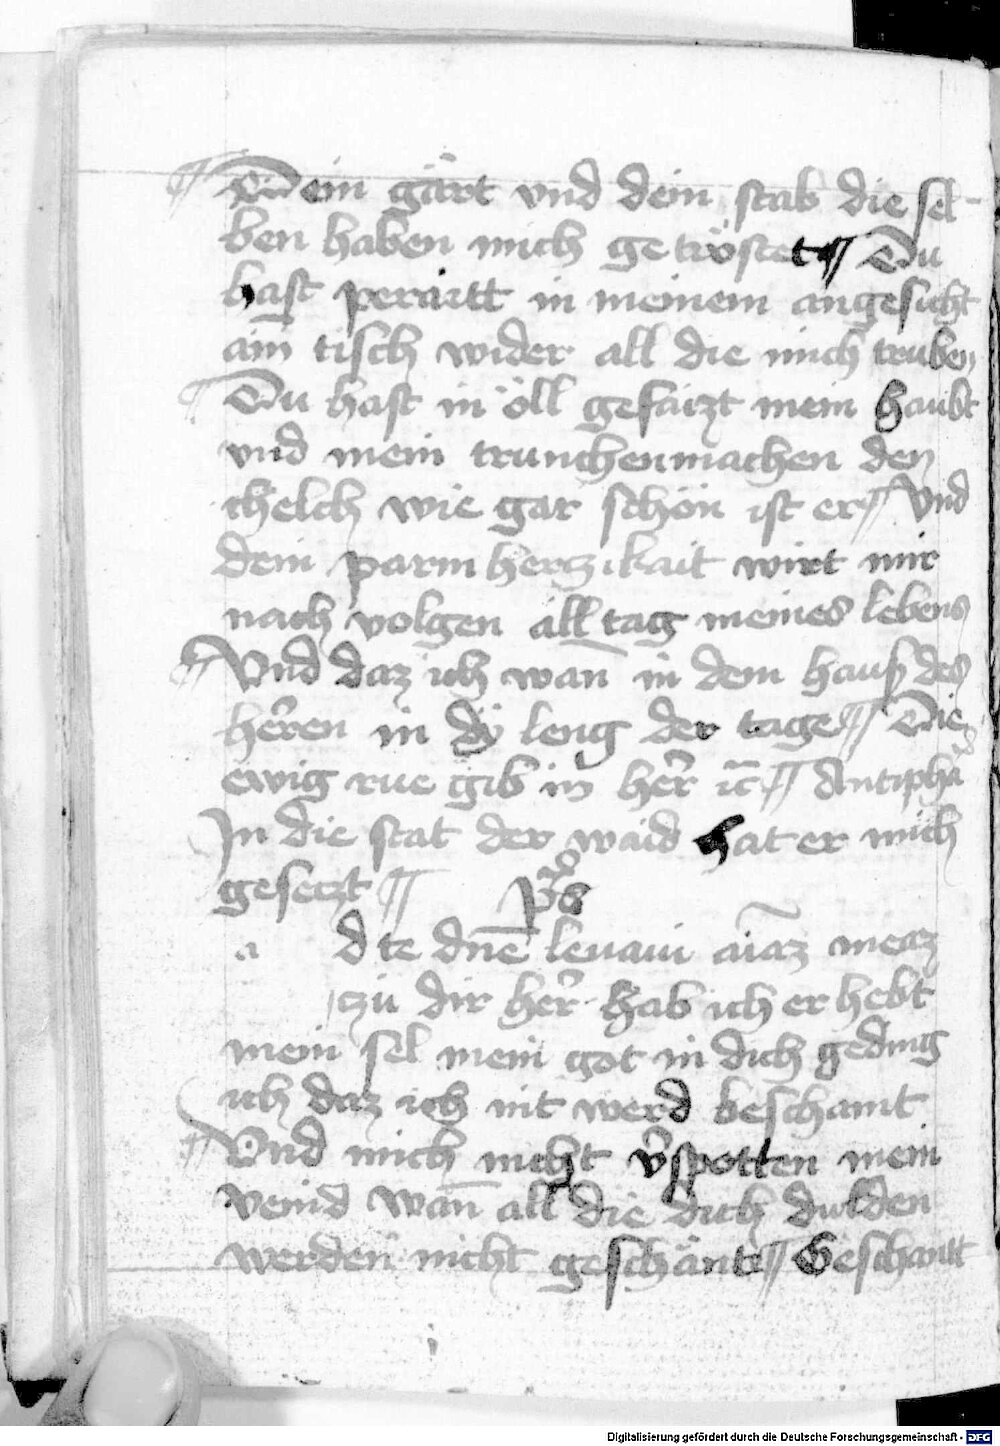 ¶ Dein gärt vnd dein stab die sel-
ben haben mich getröstet ¶ Du
hast peraitt in meinem angesicht
ain tisch wider all die mich truben
¶ Du hast in öll gefaizt mein haubt
vnd mein trunchenmachen den
chelch wie gar schön ist er ¶ Vnd
dein parmherczikait wirt mir
nach volgen all tag meines lebens
¶ Vnd daz ich wan in dem haus des
herren in dÿ leng der tage ¶ Die
ewig rue gib in her̃ ⁊c̃ ¶ Antipha
In die stat der waid hat er mich
geseczt ¶ ps
a d te dn̄e leuaui aīaz meaz
czu dir her̃ hab ich erhebt
mein sel mein got in dich geding
ich daz ich nit werd beschamt
¶ Vnd mich nicht v̄spotten mein
veind wan̄ all die dich dulden
werden nicht geschänt ¶ Geschantt
Digitalisierung gefördert durch die Deutsche Forschungsgemeinschaft - DFG